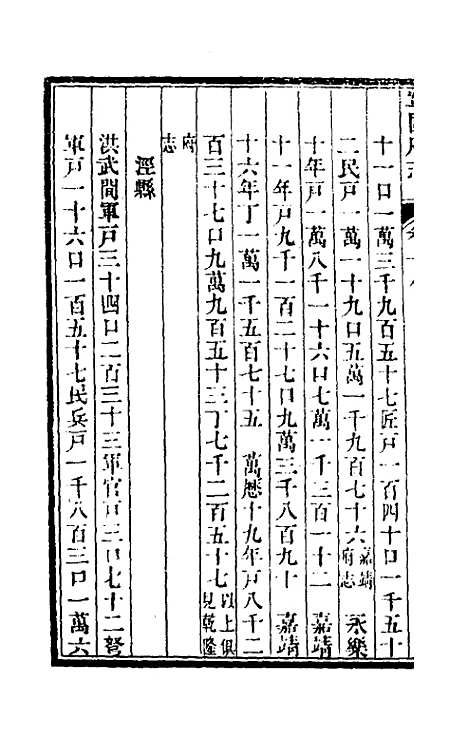 十一口一萬三千九百五十七匠戸一百四十口一千五十
二民戸一萬一十九口五萬一千九百七十六嘉靖府志 永樂
十年戸一萬八千一十六口七萬一千三百一十二 嘉靖
十一年戸九千一百二十七口九萬三千八百九十 嘉靖
十六年丁一萬一千五百七十五 萬曆十九年戸八千二
百三十七口九萬九百五十三丁七千二百五十七以上俱見乾隆
府志
涇縣
洪武間軍戸三十四口二百三十三軍官戸三口七十二弩
軍戸一十六口一百五十七民兵戸一千八百三口一萬六